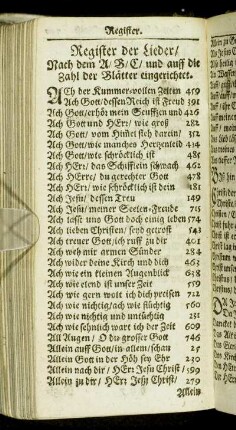 Register.
Register der Lieder/
Nach dem A/B/C/ und auff die
Zahl der Blätter eingerichtet.
ACh der Kummer-vollen Zeiten 459
Ach Gott/ dessen Reich ist Freud 391
Ach Gott/ erhör mein Seufftzen und 426
Ach Gott und HErr/ wie groß 282
Ach Gott/ vom Himel sieh darein/ 352
Ach Gott/ wie manches Hertzenleid 434
Ach Gott/ wie schröcklich ist 485
Ach HErr/ das Schifflein schwach 462
Ach HErre/ du gerechter Gott 478
Ach HErr/ wie schröcklich ist dein 481
Ach Jesu/ dessen Treu 149
Ach Jesu/ meiner Seelen-Freude 715
Ach lasse uns Gott doch einig leben 574
Ach lieben Christen/ seyd getrost 543
Ach treuer Gott/ ich ruff zu dir 401
Ach weh mir armen Sünder 284
Ach wider deine Kirch und dich 463
Ach wie ein kleinen Augenblick 638
Ach wie elend ist unser Zeit 559
Ach wie gern wolt ich dich preisen 722
Ach wie nichtig/ ach wie flüchtig 560
Ach wie nichtig und untüchtig 251
Ach wie sehnlich wart ich der Zeit 609
All Augen/ O du grosser Gott 746
Allein auff Gott/ in allein schau 25
Allein Gott in der Höh sey Ehr 230
Allein nach dir/ HErr Jesu Christ 599
Allein zu dir/ HErr Jesu Christ/ 279
Allein